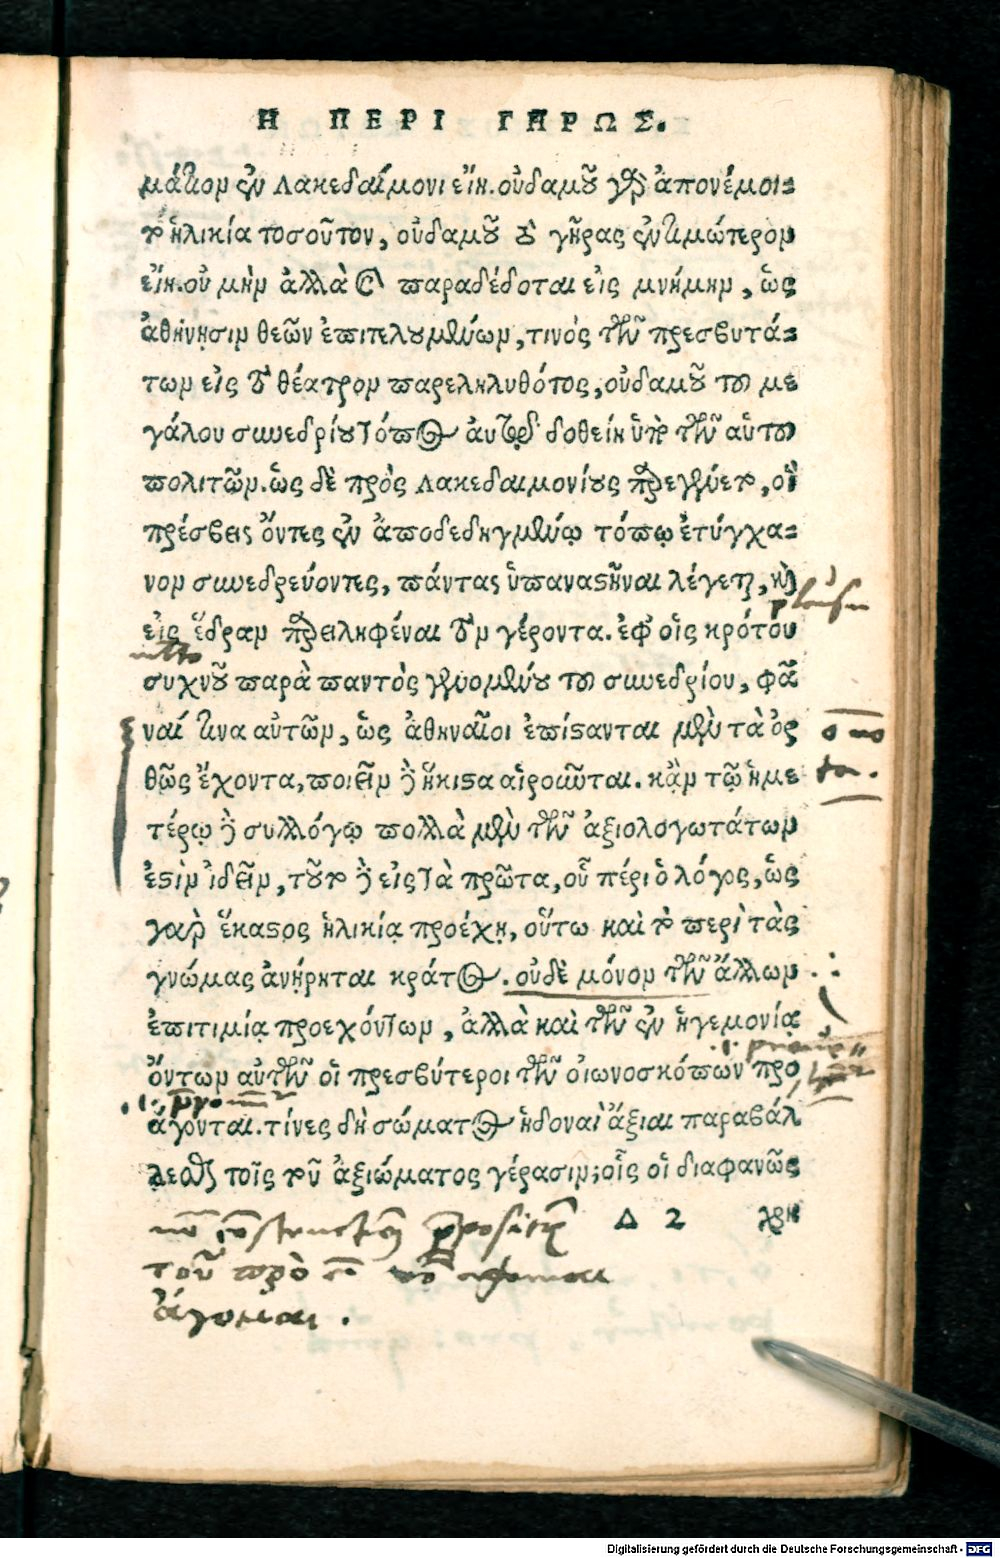 Η ΠΕΡΙ ΓΗΡΩΣ.
μάτιον ἐν Λακεδαίμονι εἴη. οὐδαμοῦ γὰρ ἀπονέμοι=
το ἡλικία τοσοῦτον, οὐδαμοῦ δὲ γῆρας ἐντιμώτερον
εἴη. οὐ μὴν ἀλλὰ καὶ παραδέδοται εἰς μνήμην, ὡς
ἀθήνῃσιν θεῶν ἐπιτελουμένων, τινὸς τῶν πρεσβυτά=
των εἰς τὸ θέατρον παρεληλυθότος, οὐδαμοῦ τοῦ με
γάλου συνεδρίου τόπος αὐτῷ δοθείη ὑπὸ τῶν αὑτοῦ
πολιτῶν. ὡς δὲ πρὸς Λακεδαιμονίους παρεγένετο, οἳ
πρέσβεις ὄντες ἐν ἀποδεδηγμένῳ τόπῳ ἐτύγχα=
νον συνεδρεύοντες, πάντας ὑπαναστῆναι λέγεται, καὶ
εἰς ἕδραν παρειληφέναι τὸν γέροντα. ἐφ' οἷς κρότου
συχνοῦ παρὰ παντὸς γενομένου τοῦ συνεδρίου, φᾶ
ναί τινα αὐτῶν, ὡς ἀθηναῖοι ἐπίστανται μὲν τὰ ὀρ
θῶς ἔχοντα, ποιεῖν δὲ ἥκιστα αἱροῦνται. κἂν τῷ ἡμε
τέρῳ δὲ συλλόγῳ πολλὰ μὲν τῶν ἀξιολογωτάτων
ἐστὶν ἰδεῖν, τοῦτο δὲ εἰς τὰ πρῶτα, οὗ πέρι ὁ λόγος, ὡς
γαρ ἕκαστος ἡλικίᾳ προέχῃ, οὕτω καὶ τὸ περὶ τὰς
γνώμας ἀνῄρηται κράτος. οὐδὲ μόνον τῶν ἄλλων
ἐπιτιμίᾳ προεχόντων, ἀλλὰ καὶ τῶν ἐν ἡγεμονίᾳ
ὄντων αὐτῶν οἱ πρεσβύτεροι τῶν οἰωνοσκόπων προ
άγονται. τίνες δὴ σώματος ἡδοναὶ ἄξιαι παραβάλ
λεσθαι τοῖς τοῦ ἀξιώματος γέρασιν; οἷς οἱ διαφανῶς
Δ 2 χρη
τοῦ πρὸ
ἄγομαι.